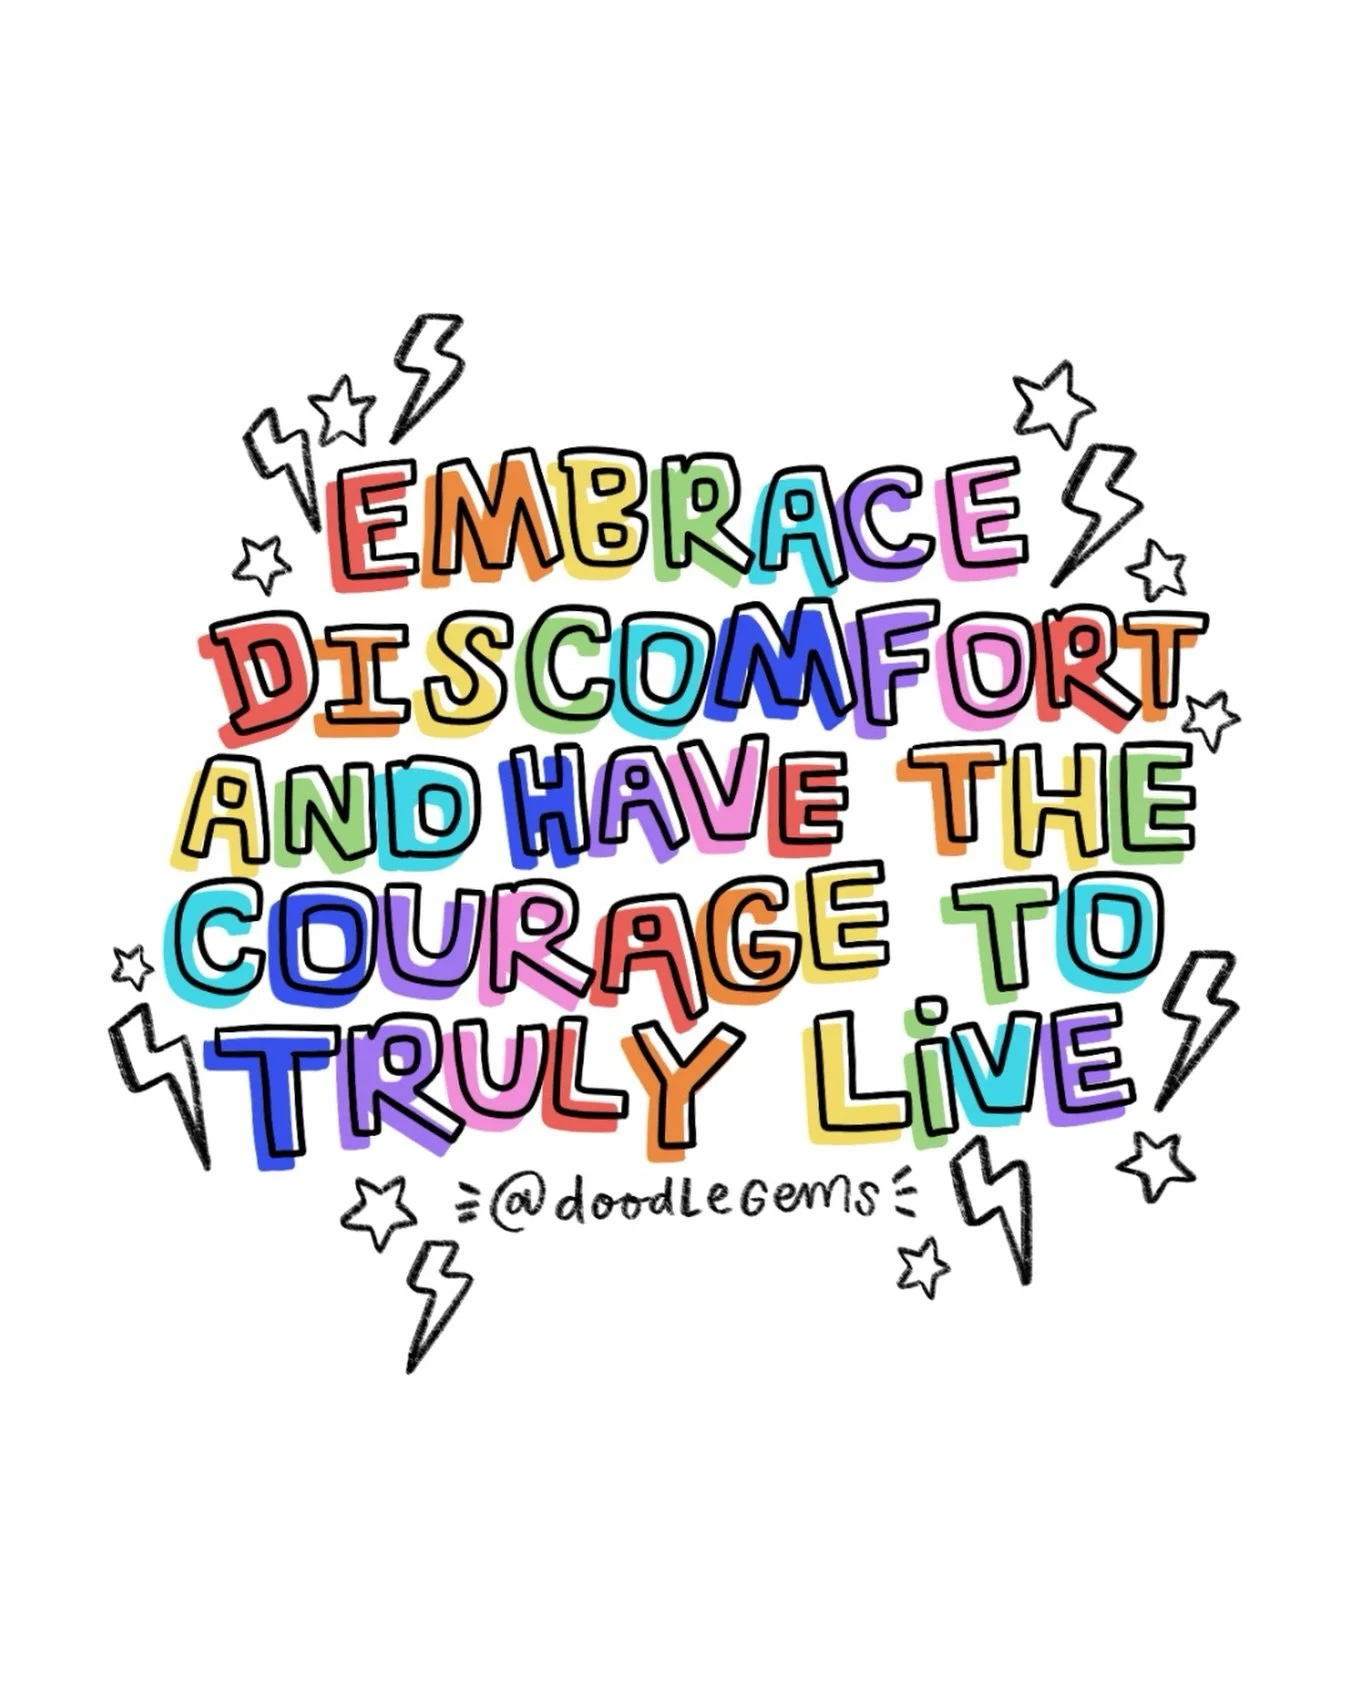 EMBRACE
DISCOMFORT
AND HAVE THE
COURAGE TO
TRULY LiVE
@doodLeGems